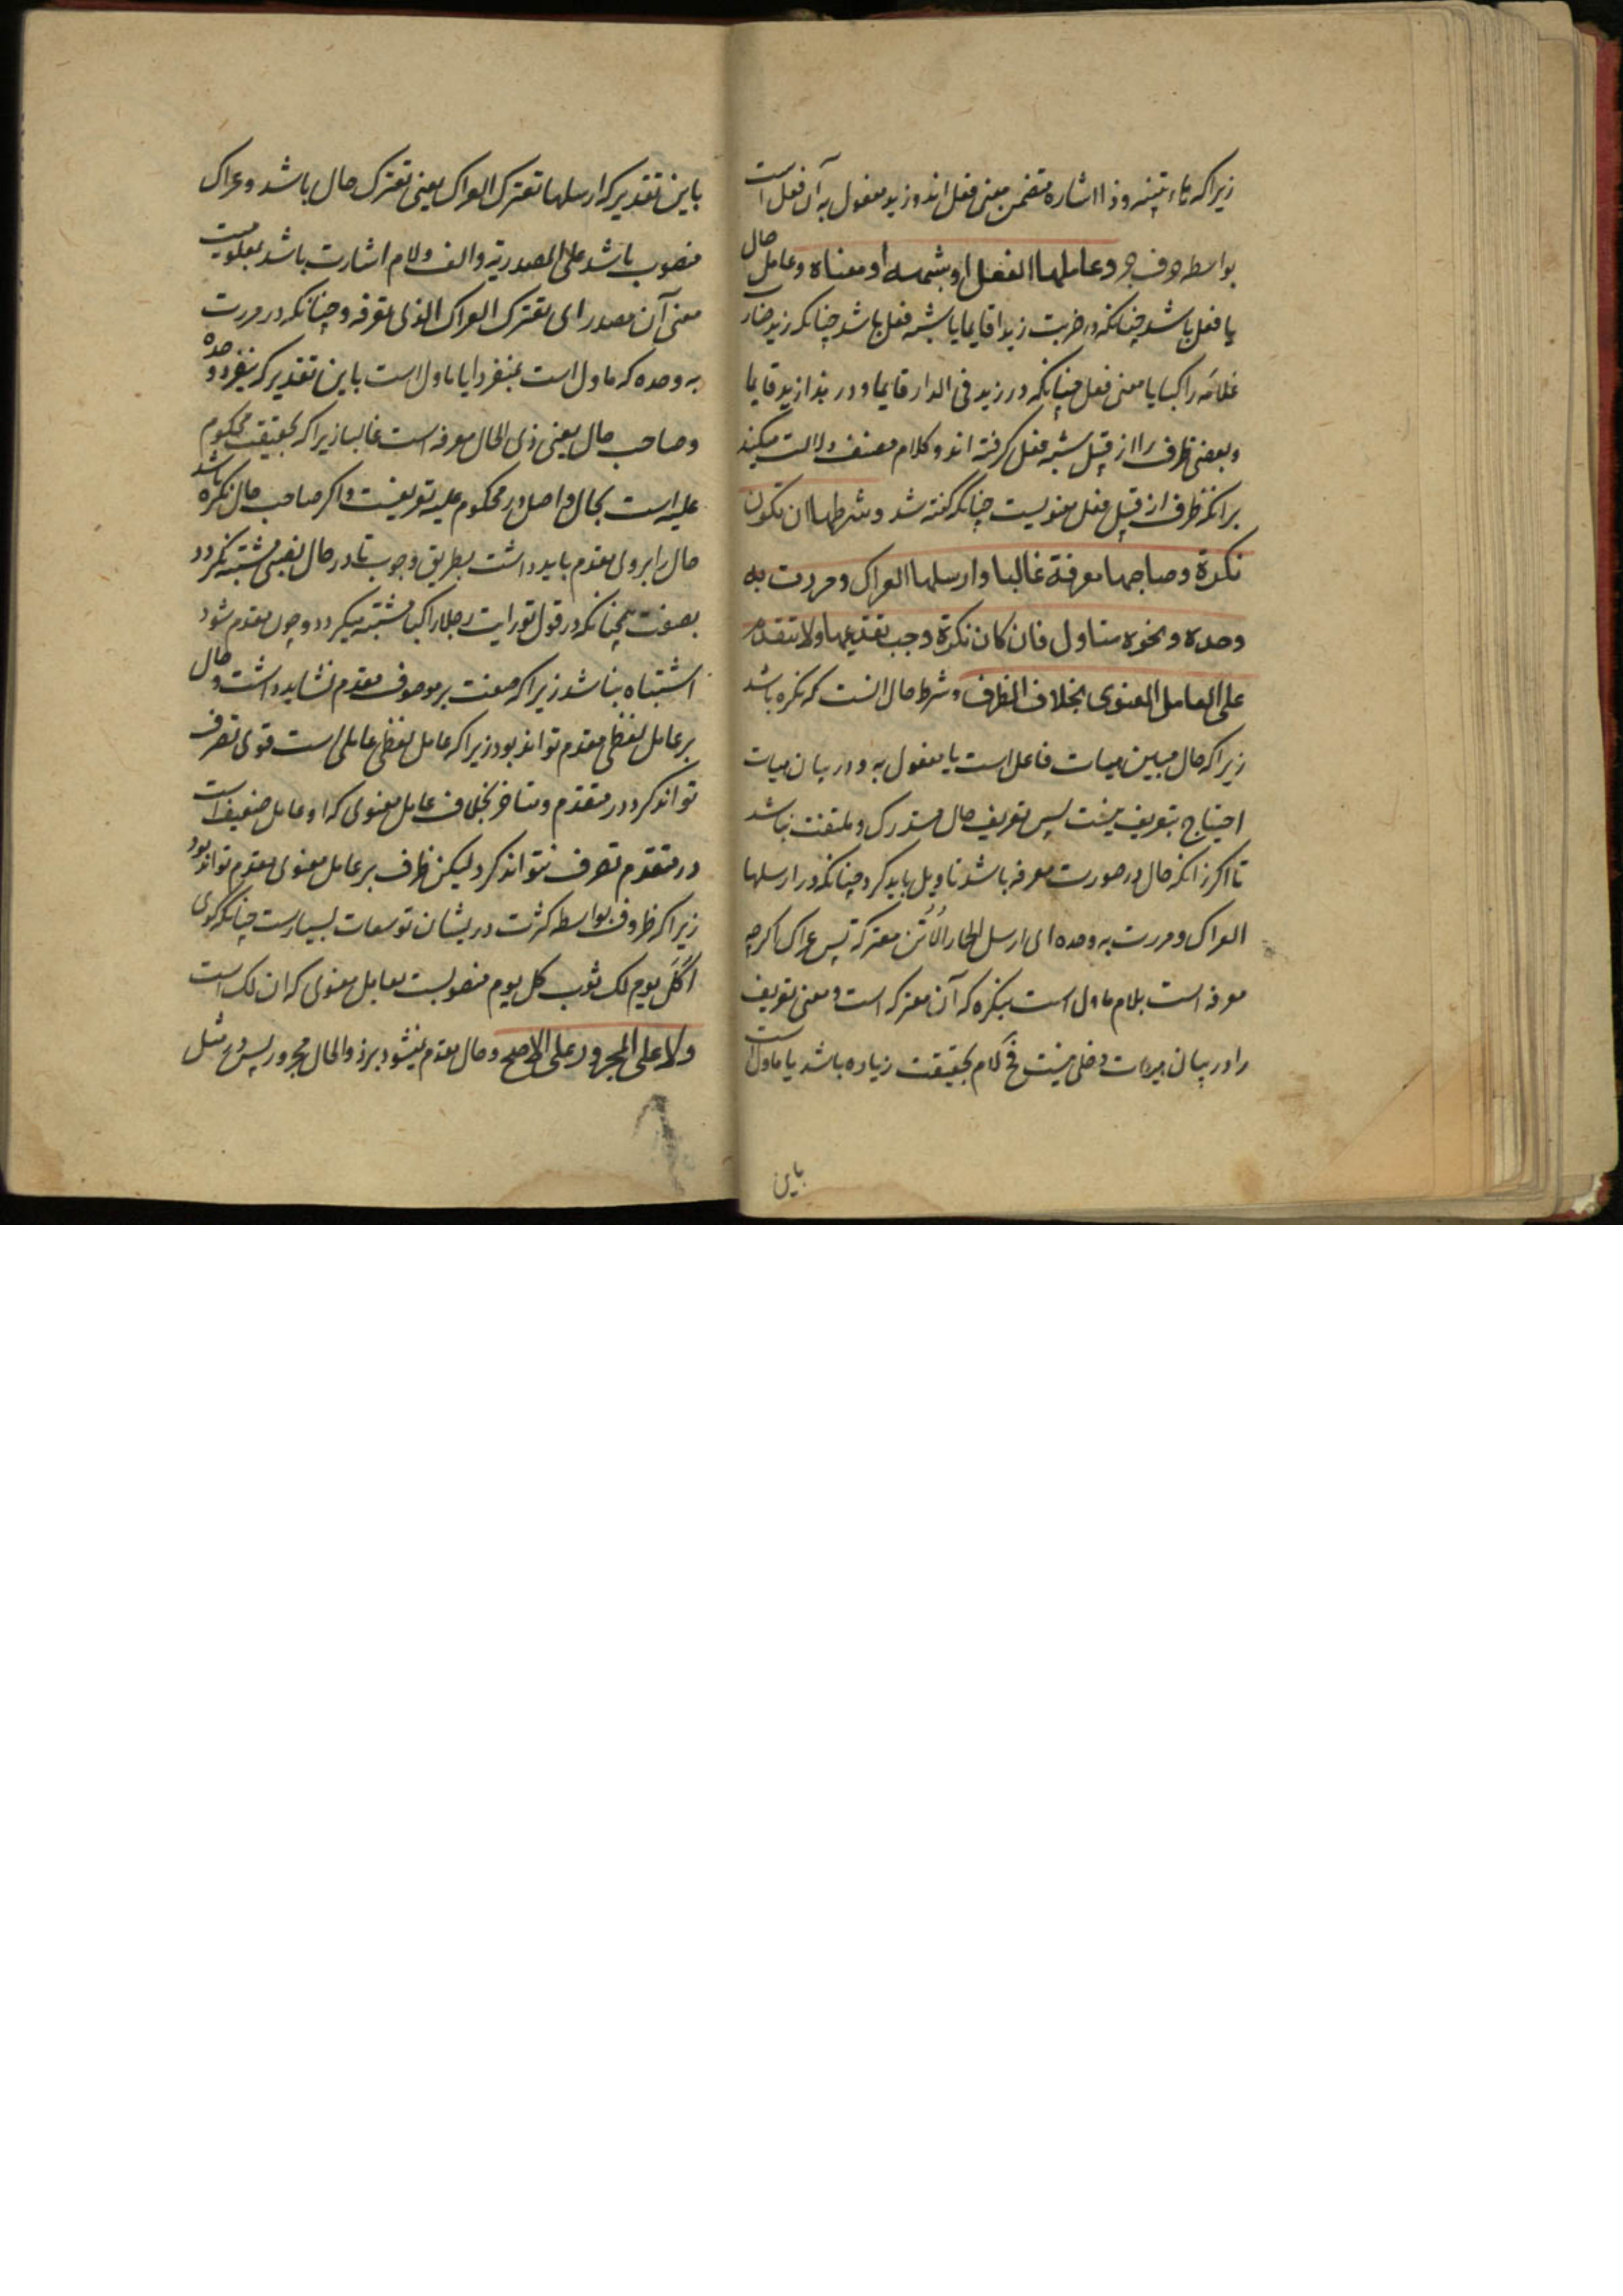 زیراکه هاء تنبیه و ذا اشاره متضمن معنی فعل اند و زید مفعول به آن فعل است
بواسطه حرف جر وعاملها الفعل اوشبهه او معناه و عامل حال
یا فعل باشد چنانکه در ضربت زیدا قایما یا شبه فعل باشد چنانکه زید ضارب
غلامه راکبا یا معنی فعل چنانکه در زید فی الدار قایما و در هذا زید قایما
و بعضی ظرف را از قبیل شبه فعل گرفته اند و کلام مصنف دلالت میکند
برانکه ظرف از قبیل فعل معنویست چنانکه گفته شد وشرطها ان تکون
نکرة وصاحبها معرفة غالبا وارسلها العراک ومررت به
وحده ونحوه متاول فان کان نکرة وجب تقدیمها ولا تتقدم
علی العامل المعنوی بخلاف الظرف و شرط حال انست که نکره باشد
زیراکه حال مبین هیات فاعل است یا مفعول به و در بیان هیات
احتیاج بتعریف نیست پس تعریف حال مستدرک و ملتفت نباشد
تا اگر زانکه حال در صورت معرفه باشد تاویل باید کرد چنانکه در ارسلها
العراک و مررت به وحده ای ارسل الحمار الاتن معترکة پس عراک اگرچه
معرفه است بلام ماول است بنکره که آن معترکه است و معنی تعریف
را در بیان هیات دخلی نیست فح لام بحقیقت زیاده باشد یا ماول است
باین
باین تقدیر که ارسلها تعترک العراک یعنی تعترک حال باشد و عراک
منصوب باشد علی المصدریة و الف و لام اشارت باشد بمعلومیت
معنی آن مصدر ای تعترک العراک الذی تعرفه و چنانکه در مررت
به وحده که ماول است بمنفردا یا ماول است باین تقدیر که ینفرد وحده
و صاحب حال یعنی ذی الحال معرفه است غالبا زیراکه بحقیقت محکوم
علیه است بحال و اصل در محکوم علیه تعریفست و اگر صاحب حال نکره باشد
حال را بر وی مقدم باید داشت بطریق وجوب تا در حال نصبی مشتبه نگردد
بصفت همچنانکه در قول تو رایت رجلا راکبا مشتبه میگردد و چون مقدم شود
اشتباه نباشد زیراکه صفت بر موصوف مقدم نشاید داشت و حال
بر عامل لفظی مقدم تواند بود زیراکه عامل لفظی عاملی است قوی تصرف
تواند کرد در متقدم و متاخر بخلاف عامل معنوی که او عامل ضعیف است
در متقدم تصرف نتواند کرد لیکن ظرف بر عامل معنوی مقدم تواند بود
زیراکه ظروف بواسطه کثرت در یشان توسعات بسیارست چنانکه گوی
اکل یوم لک ثوب کل یوم منصوبست بعامل معنوی که ان لک است
ولا علی المجرور علی الاصح و حال مقدم نمیشود بر ذو الحال مجرور پس در مثل